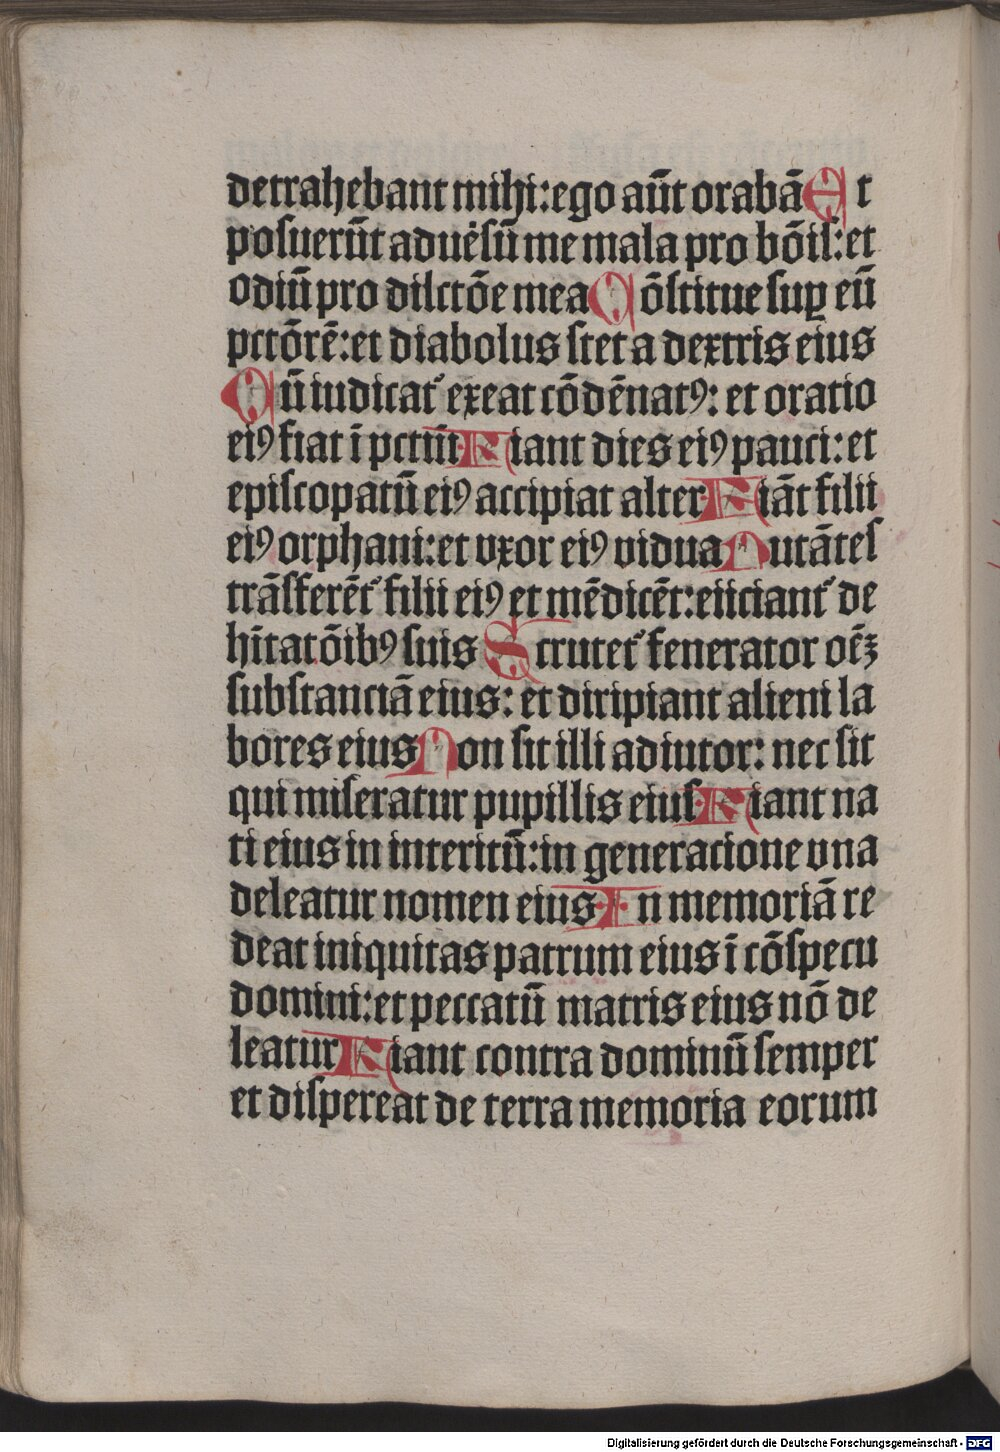 detrahebant mihi:ego aūt orabā Et
posuerūt aduėsū me mala pro bōis:et
odiū pro dilctōe mea Cōstitue suꝑ eū
pctōrē:et diabolus stet a dextris eius
Cū iudicat᷑ exeat cōdēnatꝰ: et oratio
eiꝰ fiat ī pctūt Fiant dies eiꝰ pauci:et
episcopatū eiꝰ accipiat alter Fiāt filii
eiꝰ orphani:et vxor eiꝰ vidua Nutātes
trāsferēt᷑ filii eiꝰ et mēdicēt:eiiciant᷑ de
hītatōibꝰ suis Scrutet᷑ fenerator oēꝫ
substanciā eius: et diripiant alieni la
bores eius Non sit illi adiutor: nec sit
qui miseratur pupillis eius Fiant na
ti eius in interitū:in generatione vna
deleatur nomen eius In memoriā re
deat iniquitas patrum eius ī cōspectu
domini:et peccatū matris eius nō de
leatur Fiant contra dominū semper
et dispereat de terra memoria eorum
Digitalisierung gefördert durch die Deutsche Forschungsgemeinschaft - DFG